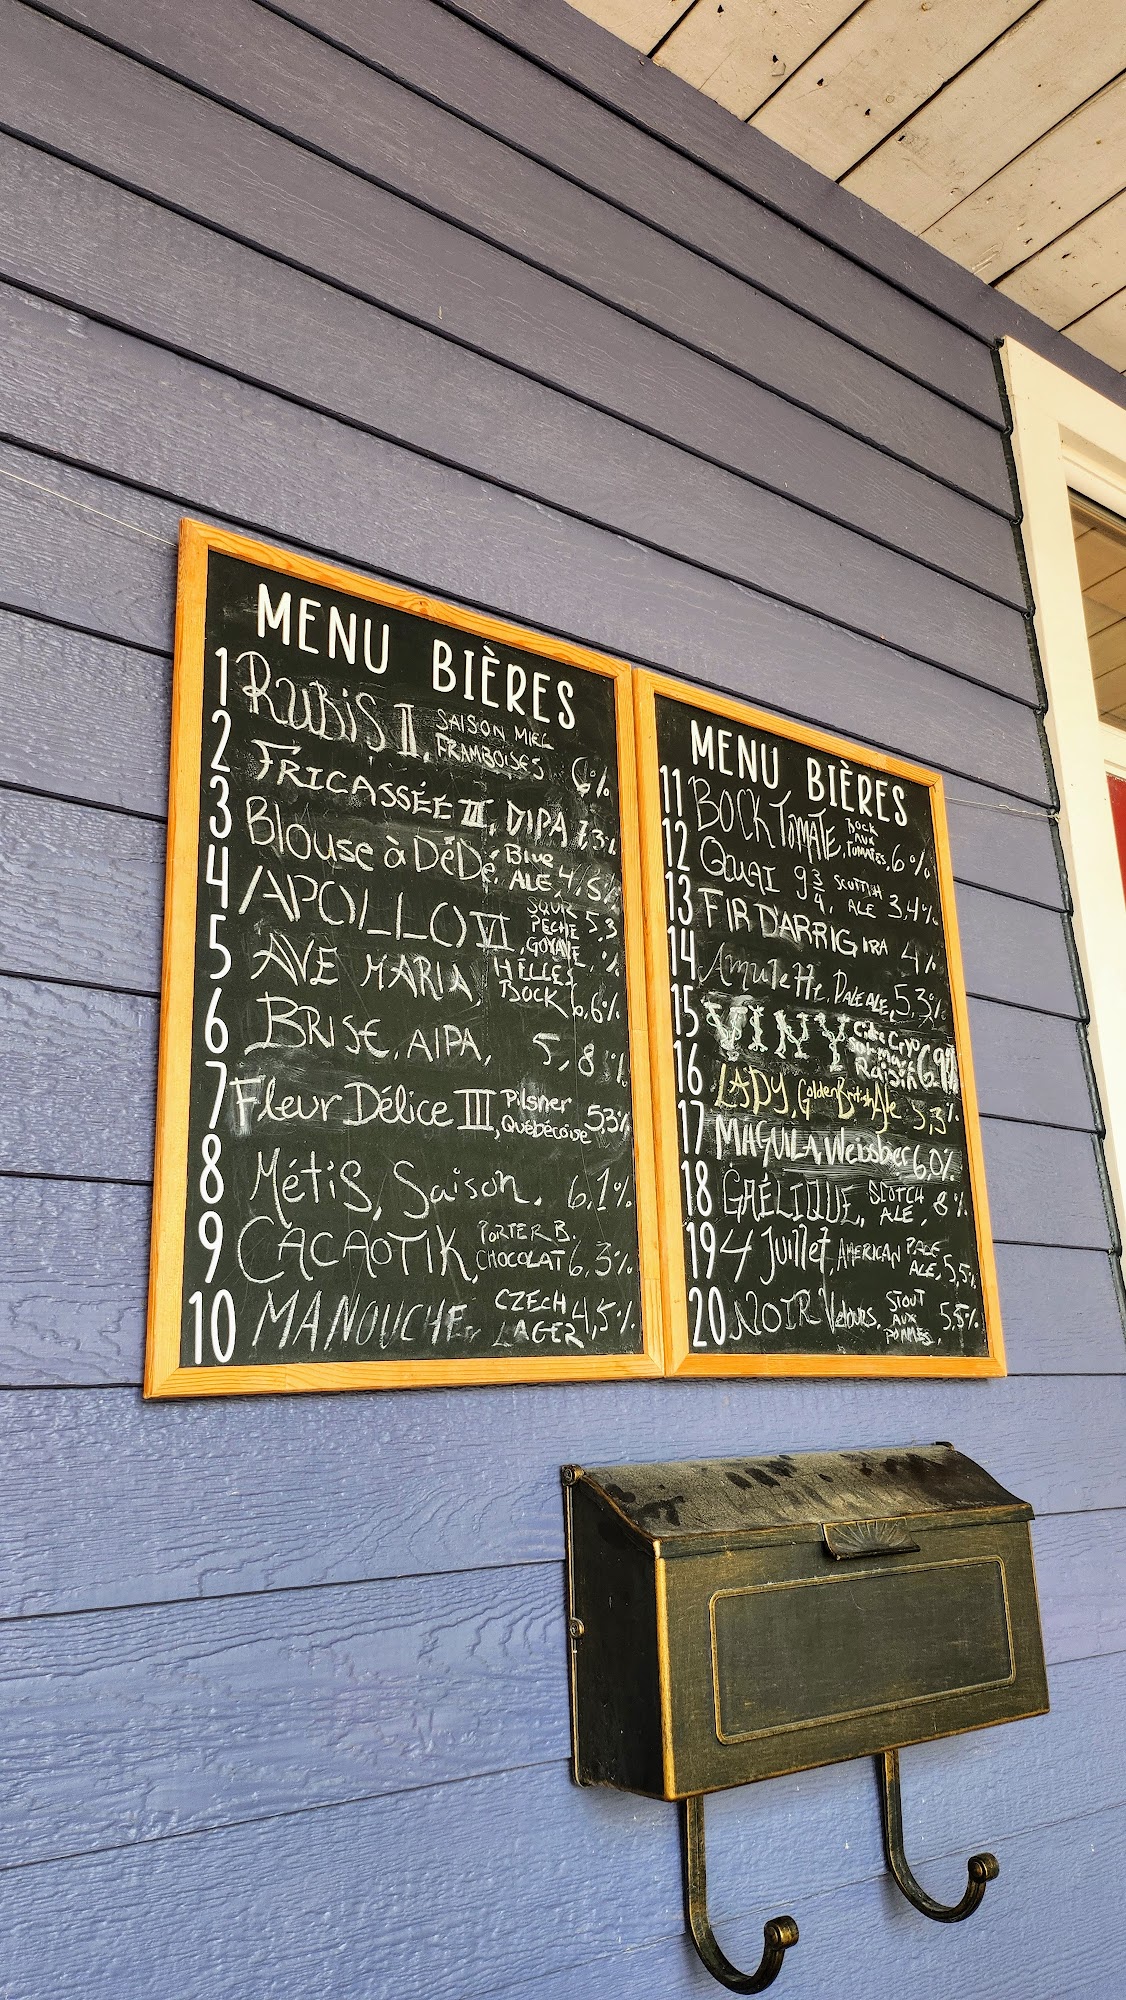 MENU BIÈRES
1 RUBIS II, SAISON MIEL
FRAMBOISES 6%
2 FRICASSÉE III, DIPA 7,3%
3 Blouse à DéDé, Blue
ALE, 4,5%
4 APOLLO VI, SOUR
PÊCHE 5,3
GOYAVE, %
5 AVE MARIA, HELLES
BOCK 6,6%
6 BRISE, AIPA, 5,8%
7 Fleur Délice III, Pilsner
Québécoise 5,3%
8 Métis, Saison, 6,1%
9 CACAOTIK, PORTER B.
CHOCOLAT 6,3%
10 MANOUCHE, CZECH
LAGER 4,5%
MENU BIÈRES
11 BOCK TOMATE, BOCK
AUX
TOMATES, 6%
12 QUAI 9 3/4, SCOTTISH
ALE 3,4%
13 FIR D'ARRIG IRA 4%
14 Amulette, PALE ALE, 5,3%
15 VINY Cidre Cryo
sur marc
Raisin 6,9%
16 LADY, Golden British Ale 5,3%
17 MAGUILA, Weissbier 6,0%
18 GAÉLIQUE, SCOTCH
ALE, 8%
19 4 Juillet, AMERICAN PALE
ALE, 5,5%
20 NOIR Velours, STOUT
AUX
POMMES, 5,5%